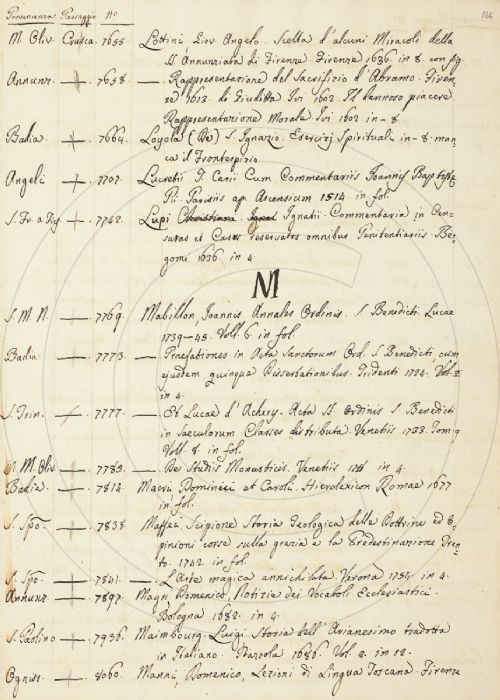 166
Provenienza Passaggi N.o
M. Oliv. Crusca. 7655. Lottini, Giov. Angelo. Scelta d'alcuni Miracoli della
SS. Annunziata di Firenze. Firenze 1636. in 8. con fig.
Annunz. — 7658. — Rappresentazione del Sacrifizio d'Abramo. Firen-
ze 1613. di Giuditta Ivi 1602. Il dannoso piacere
Rappresentazione Morale Ivi 1602 in - 8
Badia — 7664. Loyola (De) S. Ignazio. Esercizj Spirituali in - 8. man-
ca il Frontespizio
Angeli — 7707. Lucretii T. Carii Cum Commentariis Joannis Baptistę
Pii. Parisiis ap. Ascensium 1514. in fol.
S. Fr. a Rip — 7742. Lupi Ignatii. Commentaria in Cen-
suras et Casus reservatos omnibus Penitentiariis. Ber-
gomi 1636. in 4
M
S. M. N. — 7769. Mabillon, Joannis Annales Ordinis. S. Benedicti. Lucae
1739—45. Voll. 6. in fol.
Badia — 7773. — Praefationes in Acta Sanctorum Ord. S. Benedicti, cum
ejusdem quinque Dissertationibus. Tridenti 1724. Vol. 2
in 4.
S. Trin. — 7777. — Et Lucae d'Achery. Acta SS. Ordinis S. Benedicti
in saeculorum Classes distributa Venetiis 1733. Tom. 9
Voll. 8 in fol.
M. Oliv. — 7785. — De Studiis Monasticis. Venetiis in 4.
Badia. — 7814. Macri Dominici et Caroli. Hierolexicon Romae 1677
in fol.
S. Spo. — 7838. Maffei, Scipione Storia Teologica delle Dottrine ed O-
pinioni corse sulla grazia e la Predestinazione Tren-
to. 1742 in fol.
S. Spo. — 7841. — L'Arte magica annichilata. Verona 1754. in 4.
Annunz — 7897. Magri Domenico Notizie dei Vocaboli Ecclesiastici.
Bologna 1682. in 4.
S. Paolino — 7936. Maimbourg. Luigi Storia dell'Arianesimo tradotta
in Italiano. Piazzola 1686. Vol. 2. in 12.
Ogniss. — 8060. Manni, Domenico, Lezioni di Lingua Toscana. Firenze